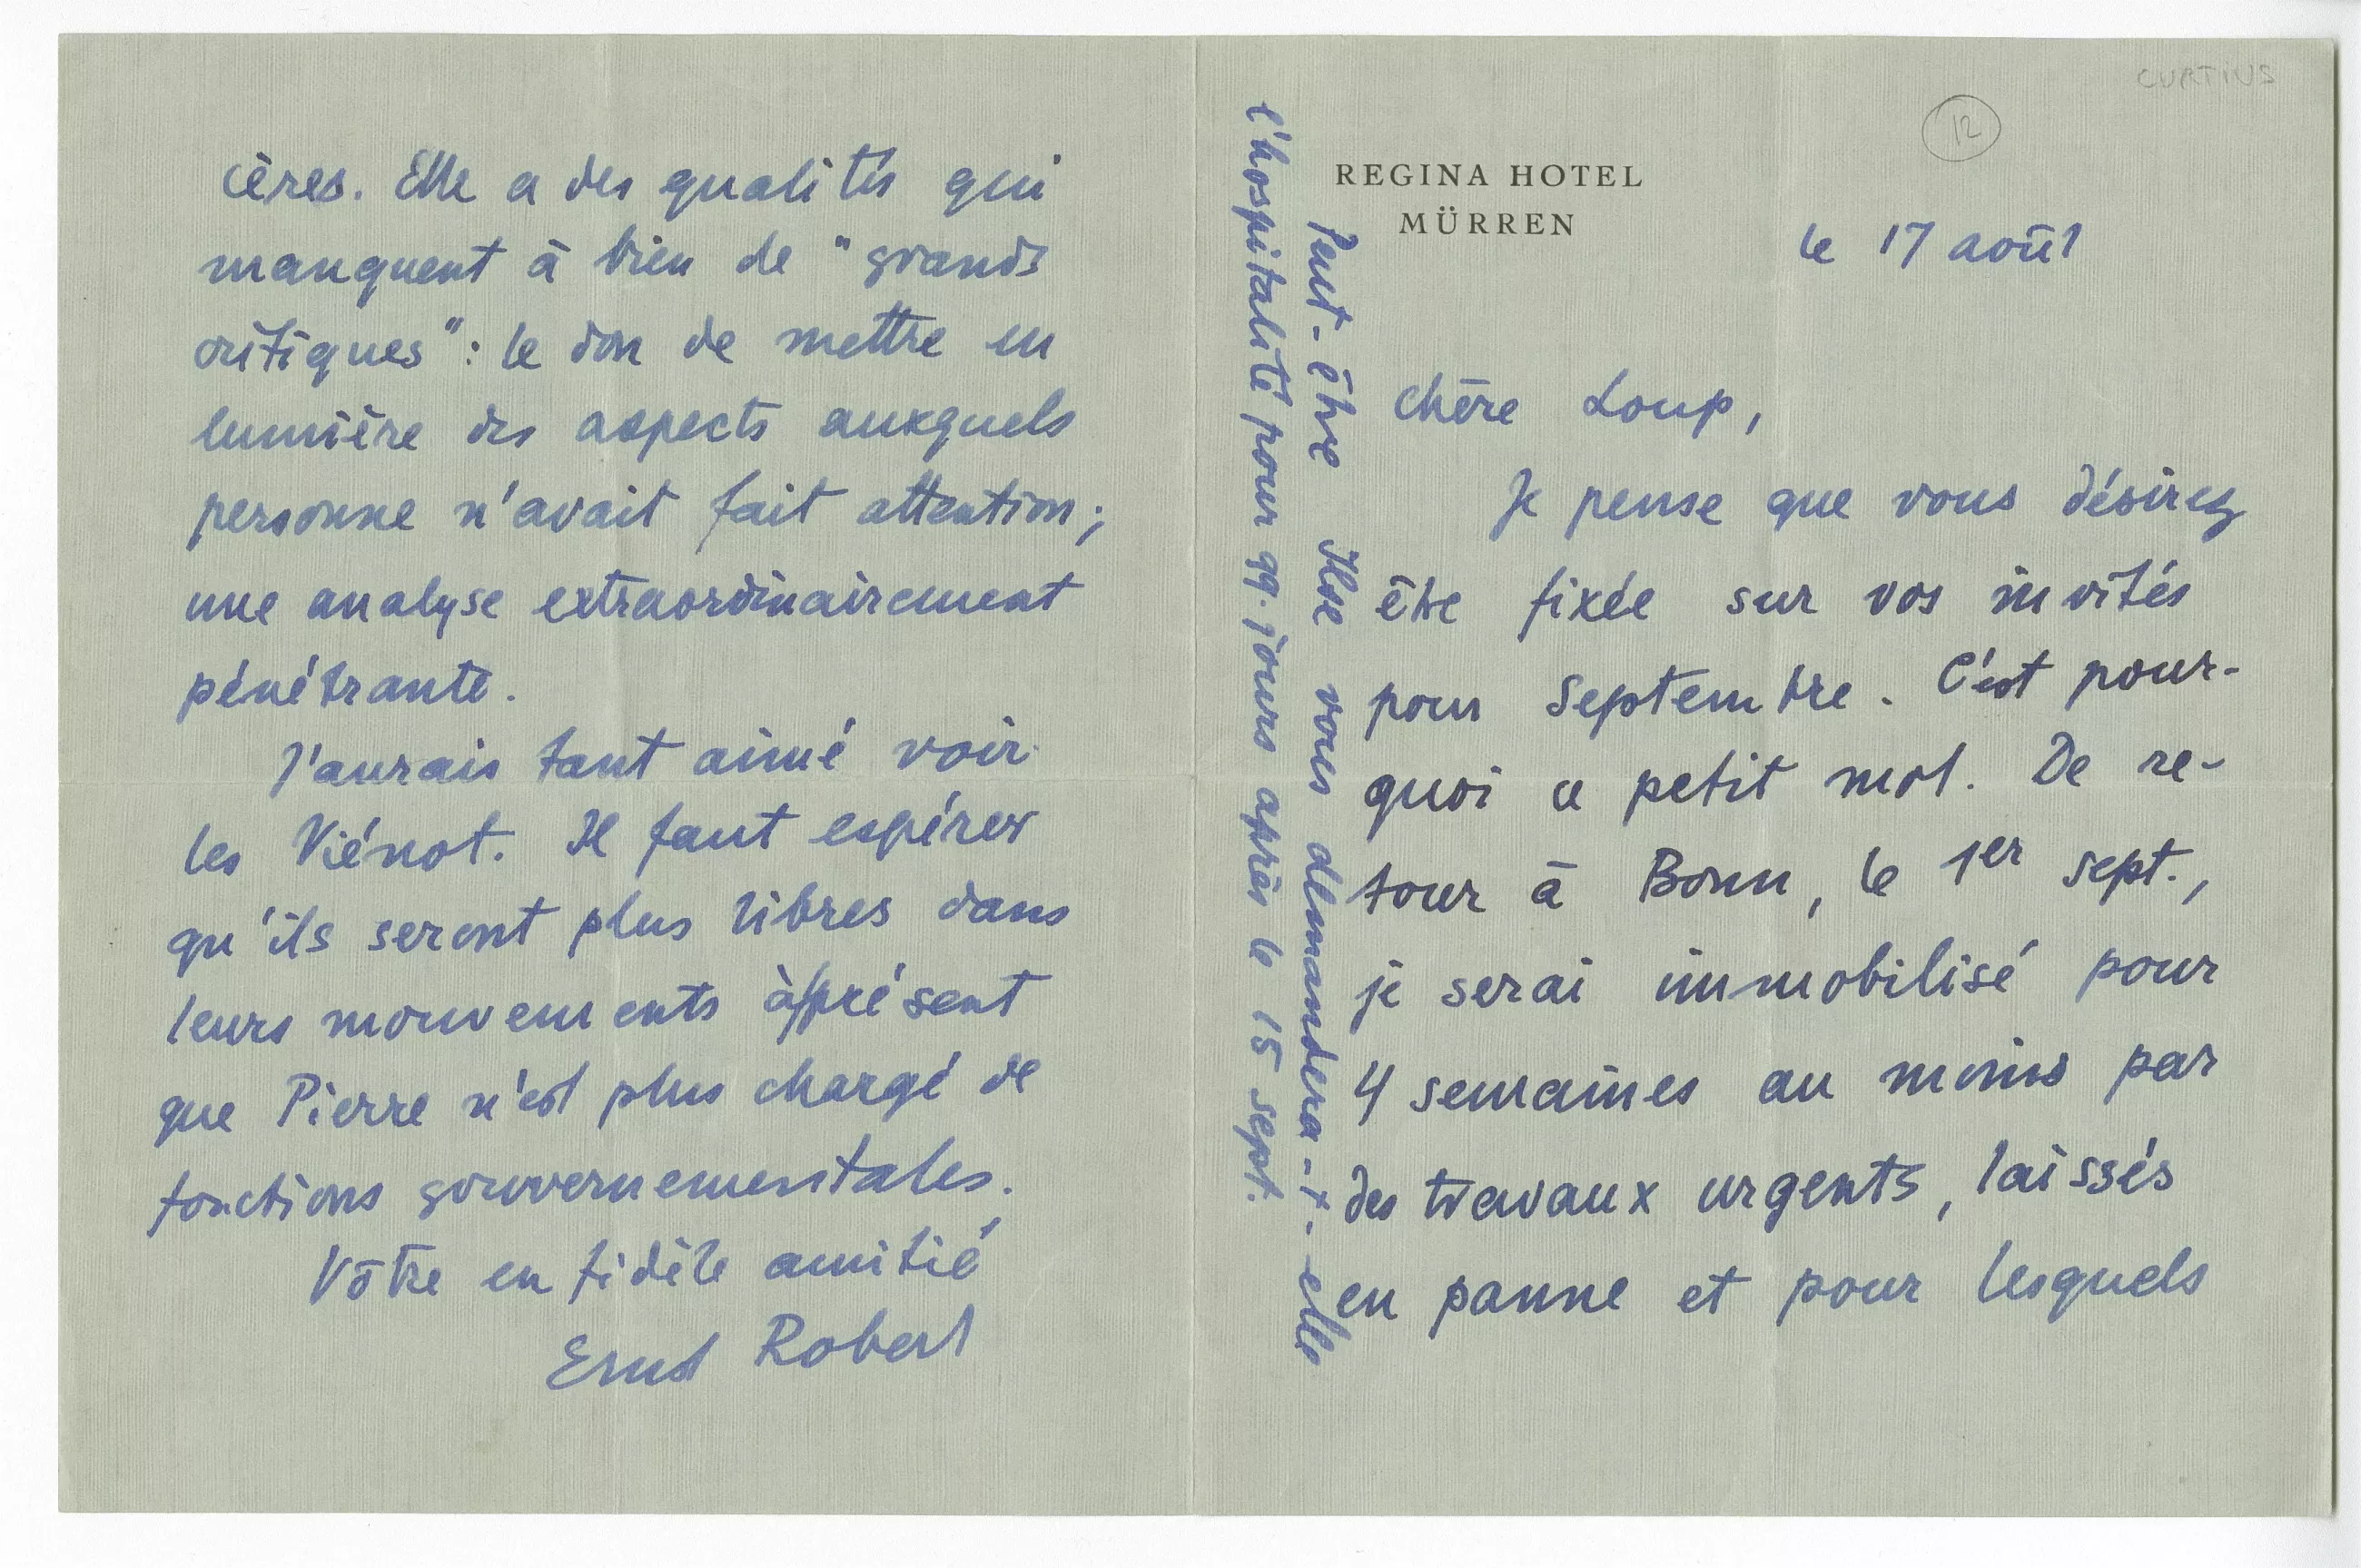 CURTIUS
12
REGINA HOTEL
MÜRREN
le 17 août
Chère Loup,
Je pense que vous désirez
être fixée sur vos invités
pour Septembre. C'est pour-
quoi ce petit mot. De re-
tour à Bonn, le 1er sept.,
je serai immobilisé pour
4 semaines au moins par
des travaux urgents, laissés
en panne et pour lesquels
Peut-être Ilse vous demandera-t-elle
l'hospitalité pour qq. jours après le 15 sept.
cères. Elle a des qualités qui
manquent à bien de "grands
critiques": le don de mettre en
lumière des aspects auxquels
personne n'avait fait attention;
une analyse extraordinairement
pénétrante.
J'aurais tant aimé voir
les Viénot. Il faut espérer
qu'ils seront plus libres dans
leurs mouvements à/présent
que Pierre n'est plus chargé de
fonctions gouvernementales.
Vôtre en fidèle amitié
Ernst Robert